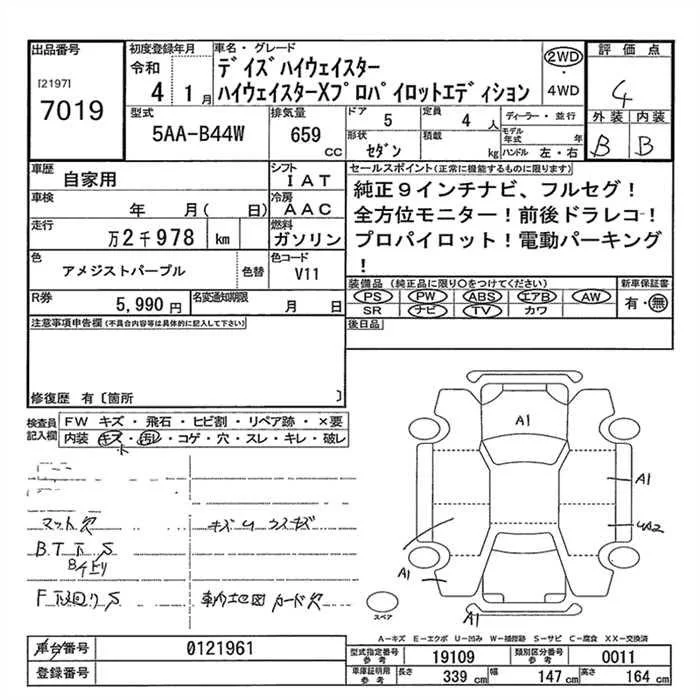 出品番号
[2197]
7019
初度登録年月
令和
4 1月
車名・グレード
デイズハイウェイスター
ハイウェイスターXプロパイロットエディション
2WD
・
4WD
評価点
4
外装 内装
B B
型式
5AA-B44W
排気量
659
CC
ドア 5
定員 4 人
ディーラー・並行
モデル年式 年
形状 セダン
積載 kg
ハンドル 左・右
車歴 自家用
シフト IAT
車検 年 月( 日)
冷房 AAC
走行 万2千978 km
燃料 ガソリン
色 アメジストパープル
色替
色コード V11
R券 5,990円
名変通知期限 月 日
セールスポイント(正常に機能するものに限ります)
純正9インチナビ、フルセグ!
全方位モニター!前後ドラレコ!
プロパイロット!電動パーキング
!
装備品(純正品に限り○をつけてください)
PS PW ABS エアB AW
SR ナビ TV カワ
新車保証書
有・無
後日品
注意事項申告欄(不具合内容等は具体的に記入して下さい)
修復歴 有〔箇所 〕
検査員記入欄
FW キズ・飛石・ヒビ割・リペア跡・×要
内装 キズ・汚レ・コゲ・穴・スレ・キレ・破レ
小
マット欠
キズ 4 ウスキズ
B.T下S
F下回りS
車内地図カード欠
A1
A1
A1
A1
スペア
A-キズ E-エクボ U-凹み W-補修跡 S-サビ C-腐食 XX-交換済
車台番号 0121961
登録番号
型式指定番号 参考 19109
類別区分番号 参考 0011
車庫証明書 参考 長さ 339 cm 幅 147 cm 高さ 164 cm